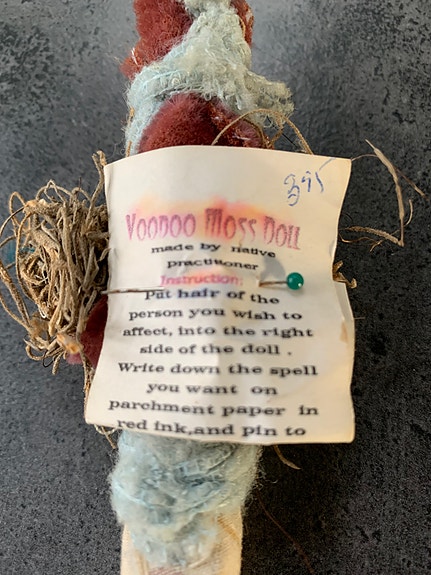 395
VOODOO MOSS DOLL
made by native
practitioner
Instruction:
Put hair of the
person you wish to
affect, into the right
side of the doll .
Write down the spell
you want on
parchment paper in
red ink,and pin to